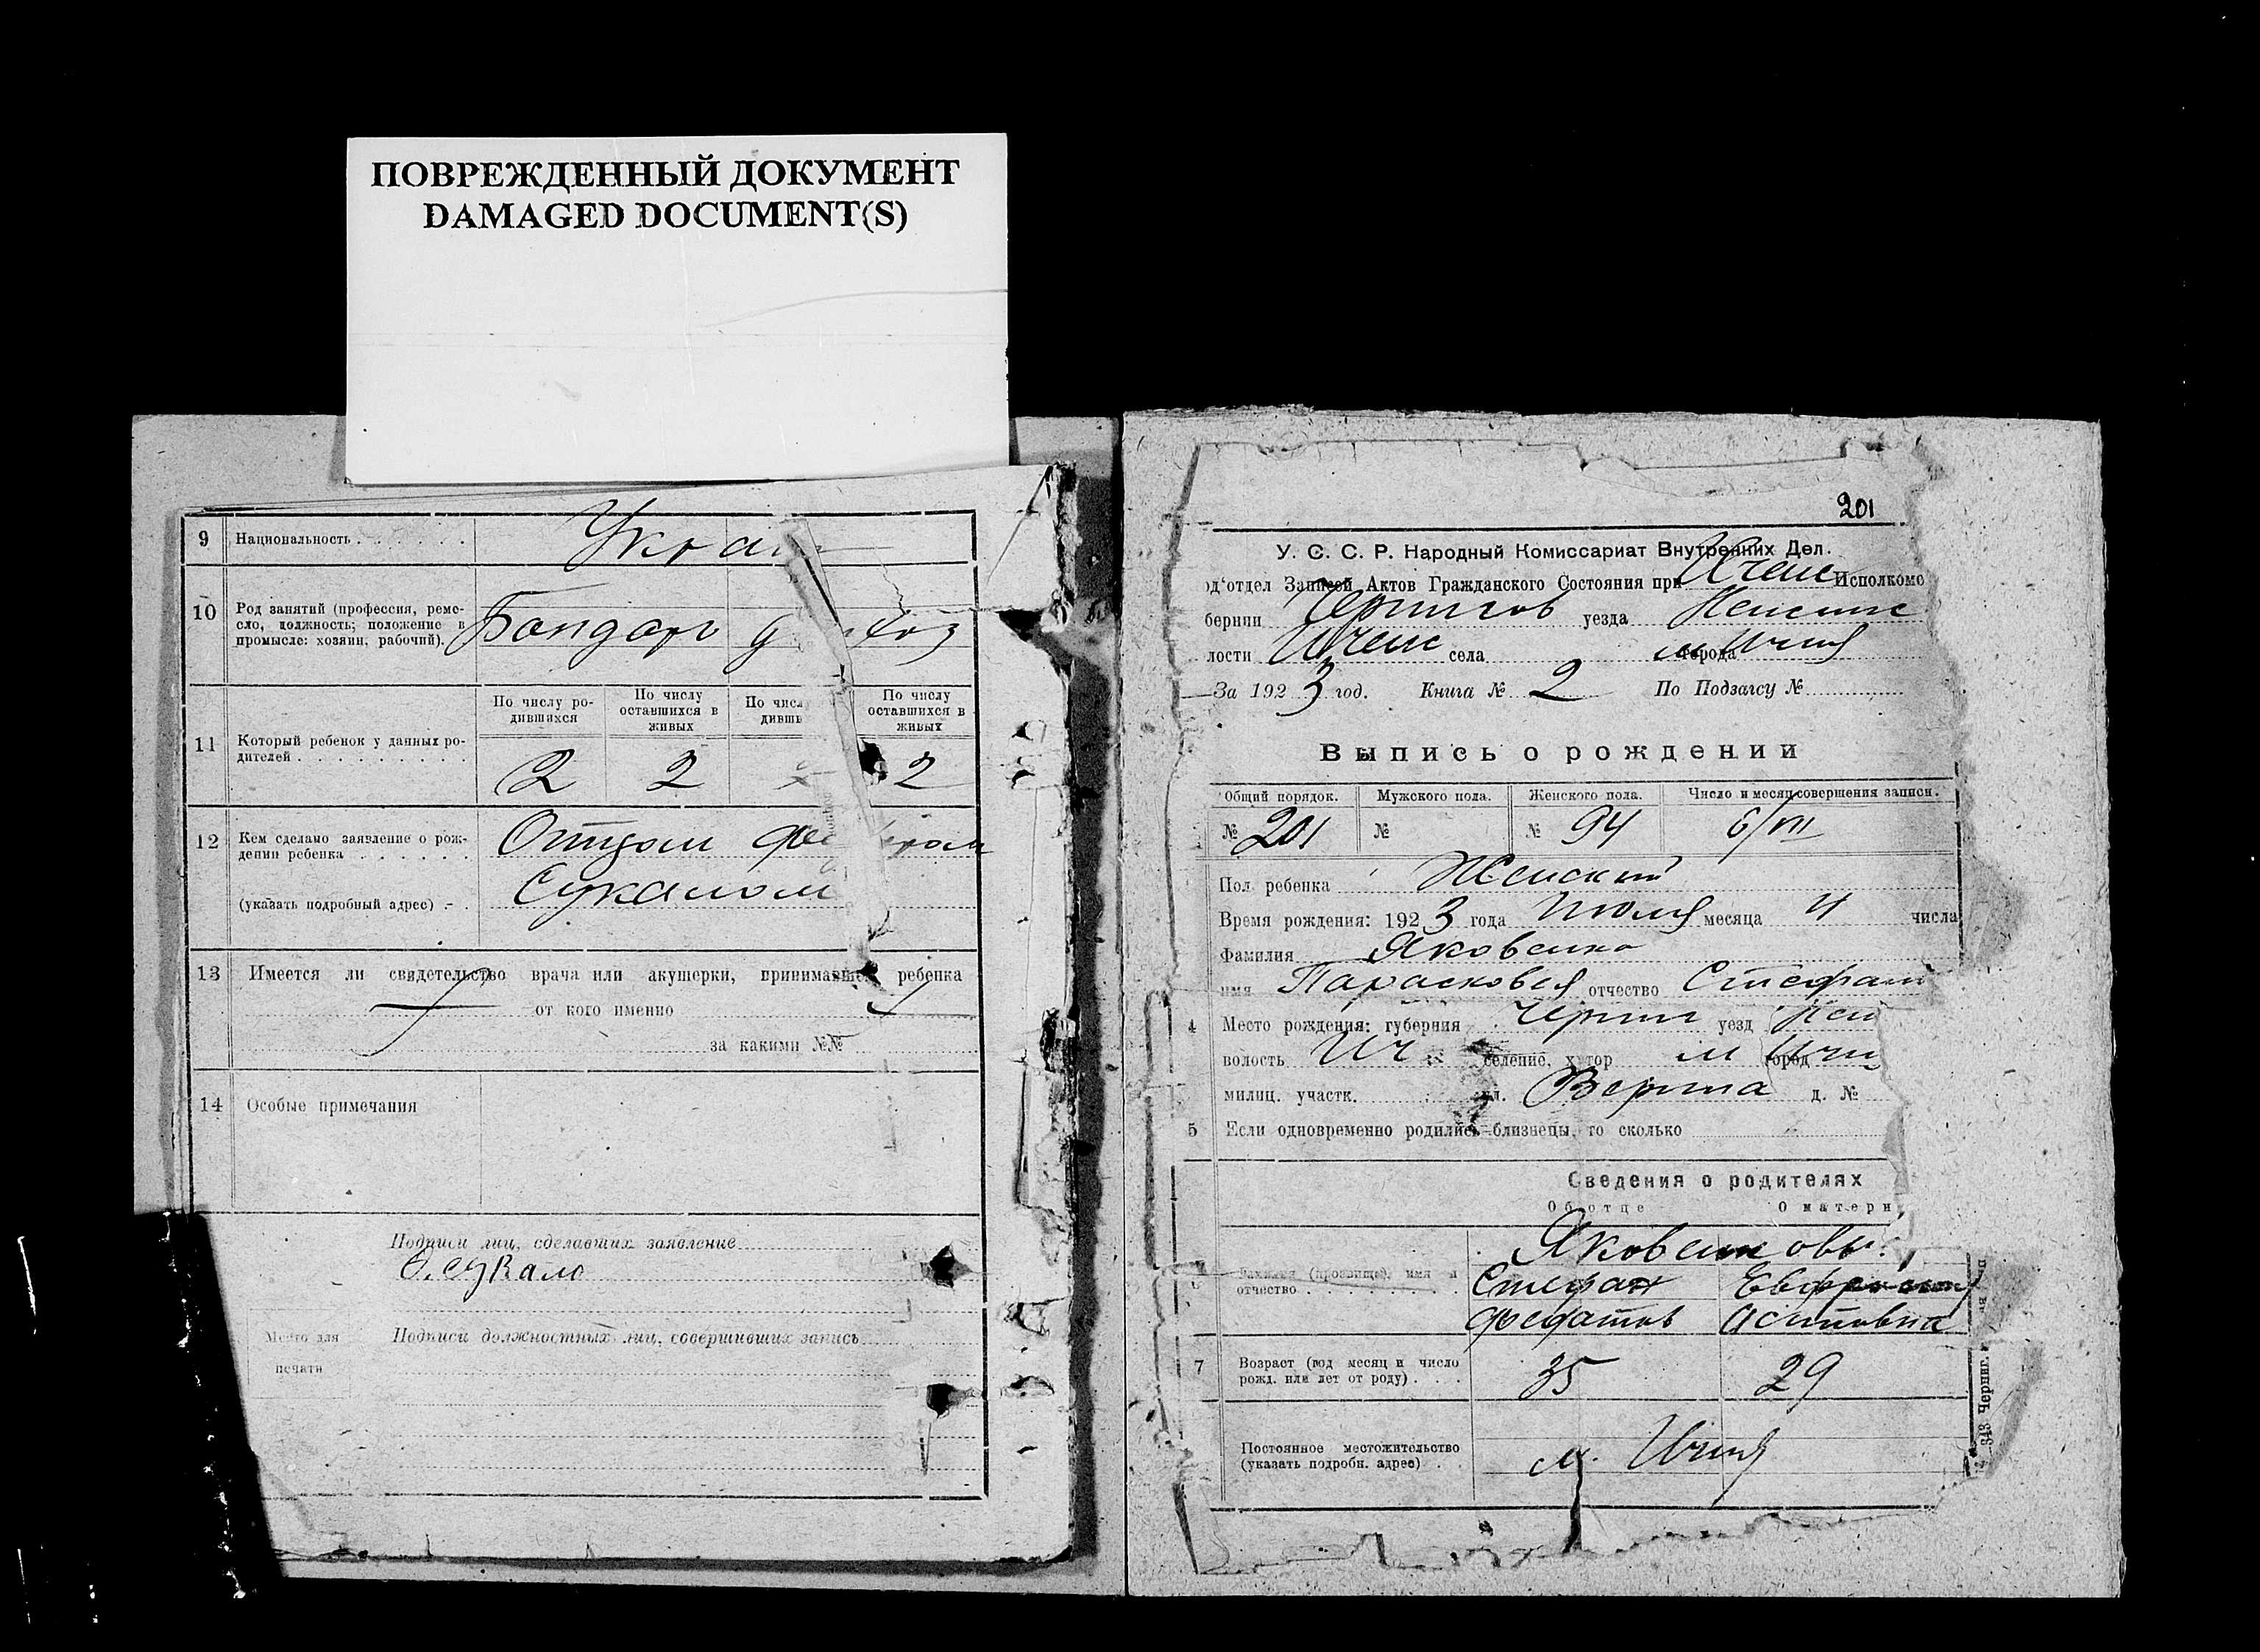 ПОВРЕЖДЕННЫЙ ДОКУМЕНТ
DAMAGED DOCUMENT(S)
9 Национальность Укра
10 Род занятий (профессия, реме-
сло, должность; положение в
промысле: хозяин, рабочий). Бондарь
11 Который ребенок у данных ро-
дителей
По числу ро-
дившихся
По числу
оставшихся в
живых
По числ
дивш
По числу
оставшихся в
живых
2 2 2
12 Кем сделано заявление о рож-
дении ребенка Отцом
(указать подробный адрес) Сукалом
13 Имеется ли свидетельство врача или акушерки, принимавшей ребенка
от кого именно
за какими №№
14 Особые примечания
Подписи лиц, сделавших заявление
Ф. Сукало
Место для
печати
Подписи должностных лиц, совершивших запись
201
У. С. С. Р. Народный Комиссариат Внутренних Дел.
од'отдел Записей Актов Гражданского Состояния при Ичен Исполкомо
бернии Чернигов уезда Неженс
лости Ичен села города м Ичня
За 1923 год. Книга № 2 По Подзагсу №
Выпись о рождении
Общий порядок. Мужского пола. Женского пола. Число и месяц совершения записи.
№ 201 № № 94 6/VII
Пол ребенка Женский
Время рождения: 1923 года Июля месяца 4 числа
Фамилия Яковенко
имя Парасковея отчество Стефан
4 Место рождения: губерния Черниг уезд Неж
волость Ич селение, хутор м город Ични
милиц. участк. ул. д. №
5 Если одновременно родились близнецы, то сколько
Сведения о родителях
Об отце О матери
Яковенковы
Фамилия (прозвище), имя и
отчество
Стефан Евфросиния
Федотов Осиповна
7 Возраст (год месяц и число
рожд. или лет от роду) 35 29
Постоянное местожительство
(указать подробн. адрес) м. Ичня
343 Черниг.